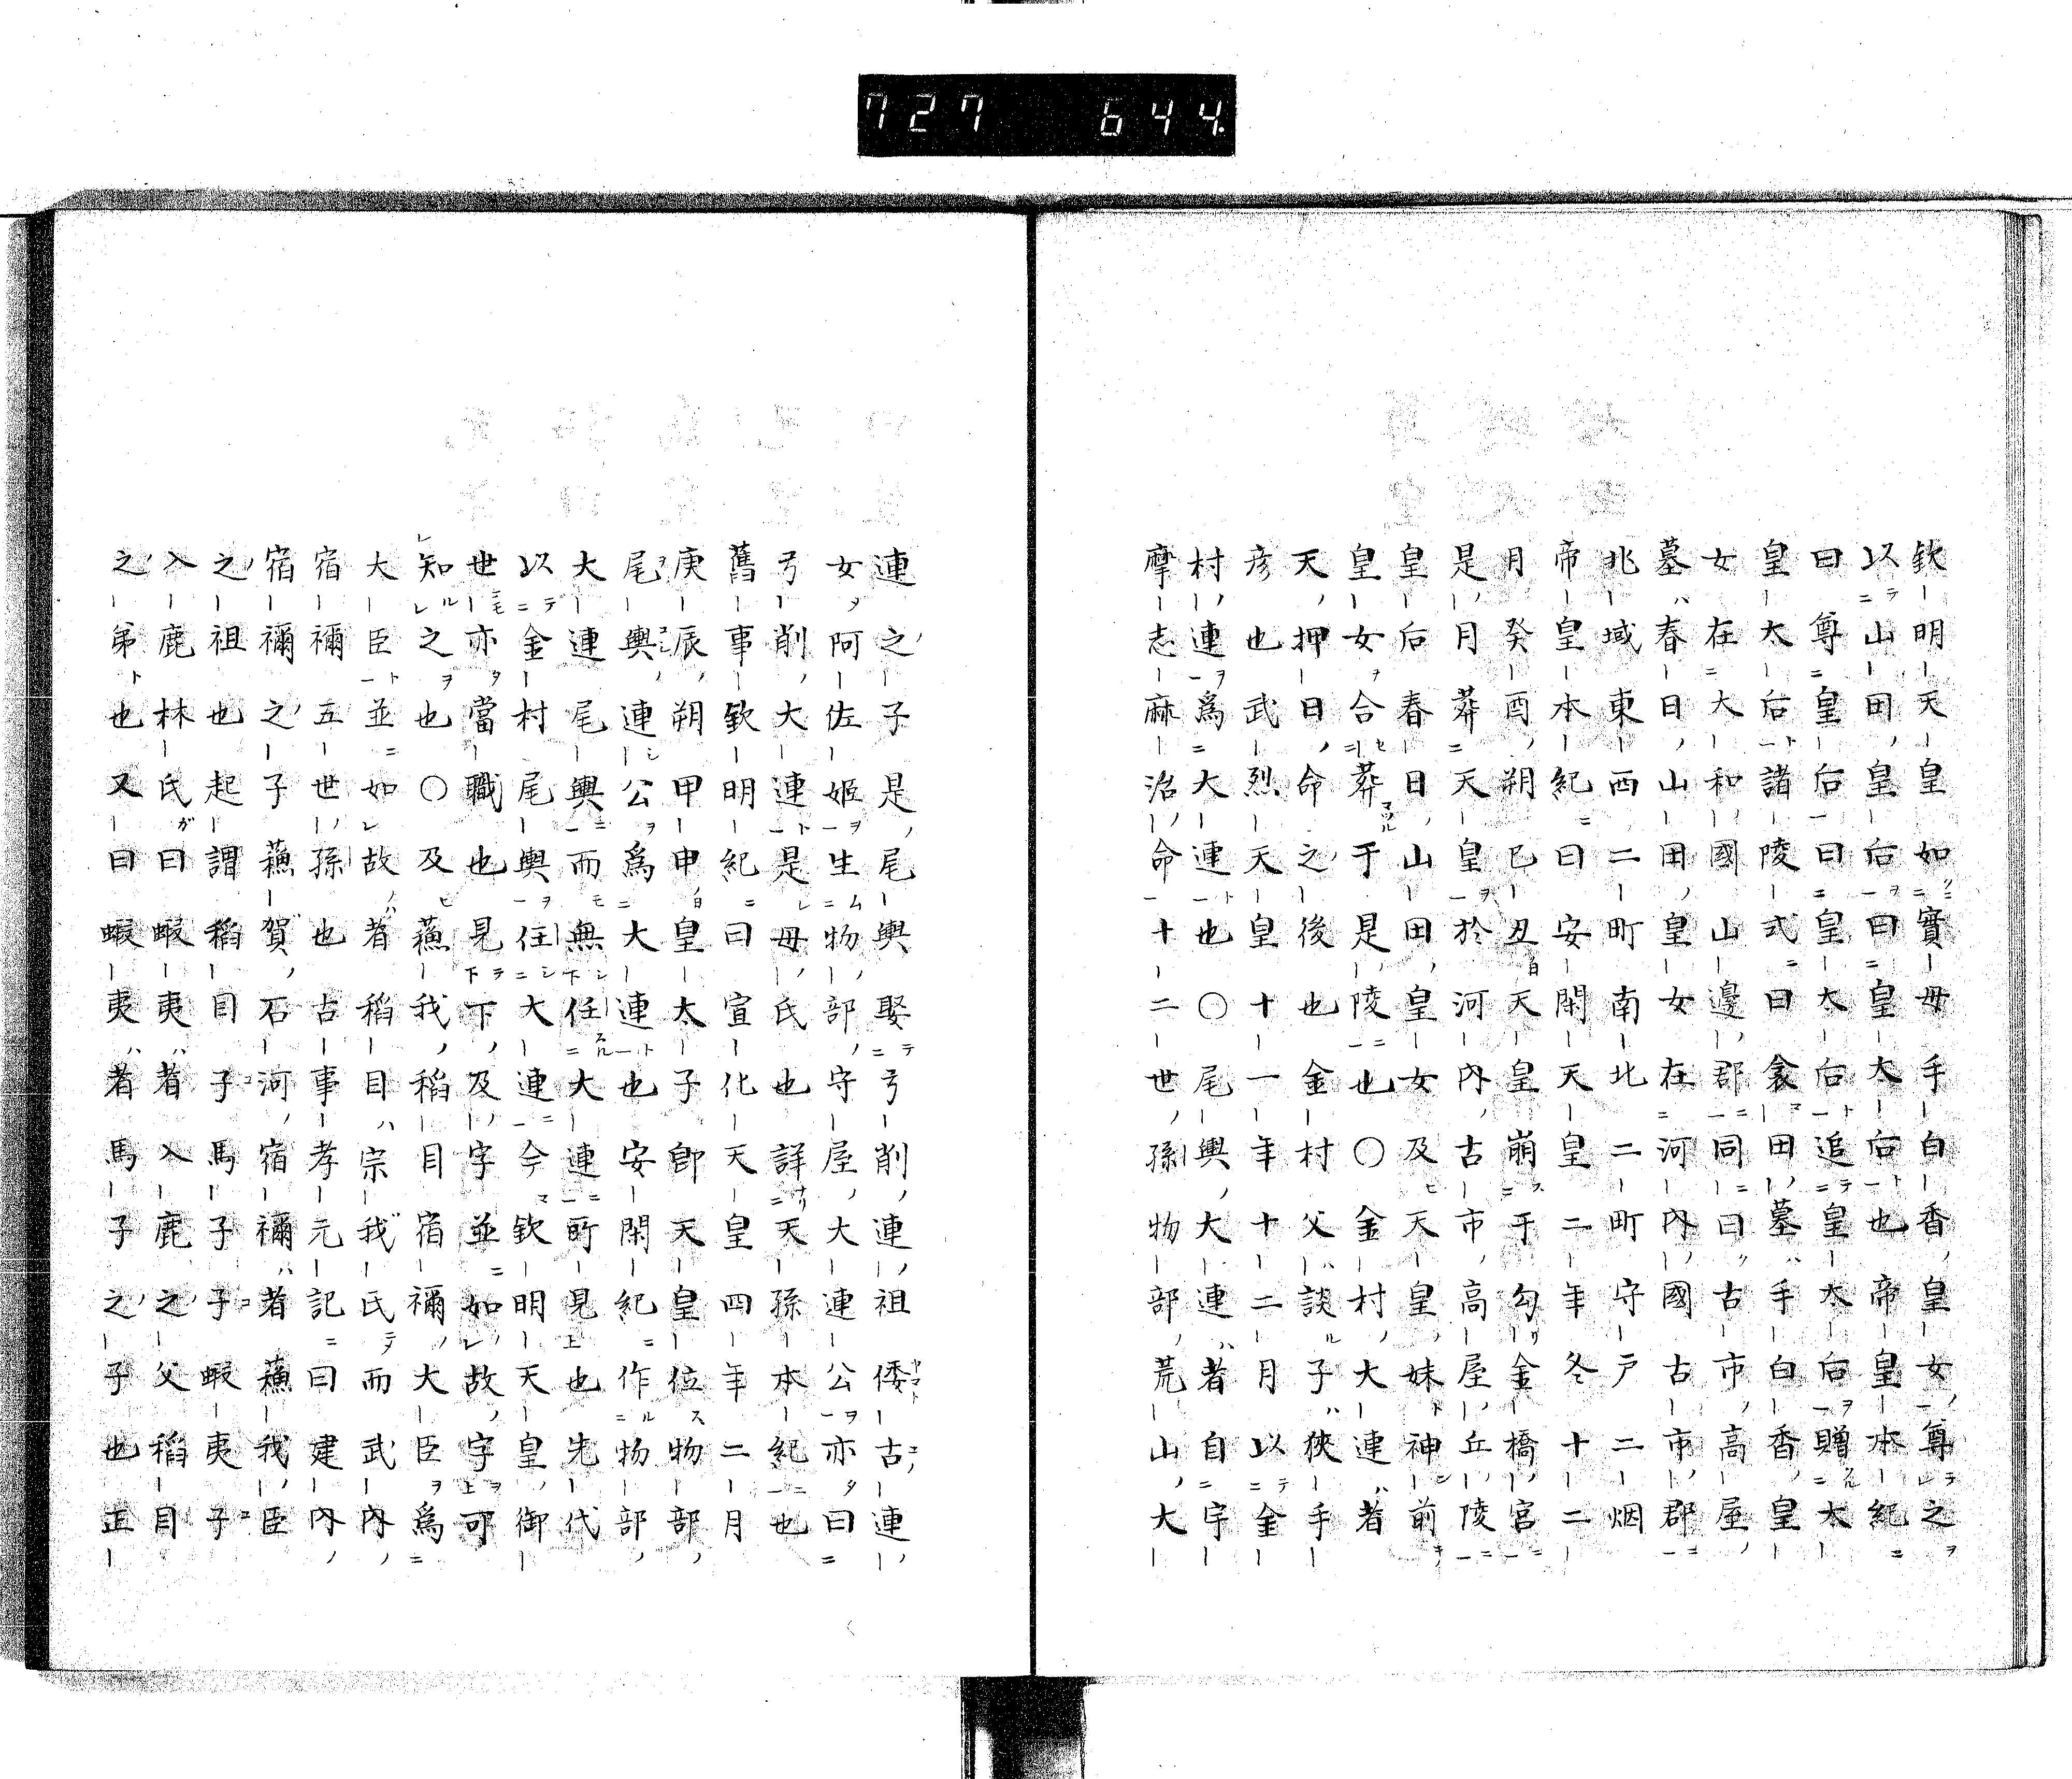 727 644.
欽明天皇如實母手白香皇女尊之
以山田皇后曰皇太后也帝皇本紀
曰尊皇后曰皇太后追皇太后贈太
皇太后諸陵式曰衾田墓手白香皇
女在大和國山邊郡同曰古市高屋
墓春日山田皇女在河內國古市郡
兆域東西二町南北二町守戸二烟
帝皇本紀曰安閑天皇二年冬十二
月癸酉朔巳丑天皇崩于勾金橋宮
是月葬天皇於河內古市高屋丘陵
皇后春日山田皇女及天皇妹神前
皇女合葬于是陵也〇金村大連者
天押日命之後也金村父談子狹手
彦也武烈天皇十一年十二月以金
村連爲大連也〇尾輿大連者自宇
摩志麻治命十二世孫物部荒山大
連之子是尾輿娶弓削連祖倭古連
女阿佐姬生物部守屋大連公亦曰
弓削大連是母氏也詳天孫本紀也
舊事欽明紀曰宣化天皇四年二月
庚辰朔甲申皇太子卽天皇位物部
尾輿連公爲大連也安閑紀作物部
大連尾輿而無任大連所見也先代
以金村尾輿任大連今欽明天皇御
世亦當職也見下及字並如故字可
知之也〇及蘓我稻目宿禰大臣爲
大臣並如故者稻目宗我氏而武內
宿禰五世孫也古事孝元記曰建內
宿禰之子蘓賀石河宿禰者蘓我臣
之祖也起謂稻目子馬子子蝦夷子
入鹿林氏曰蝦夷者入鹿之父稻目
之弟也又曰蝦夷者馬子之子也正